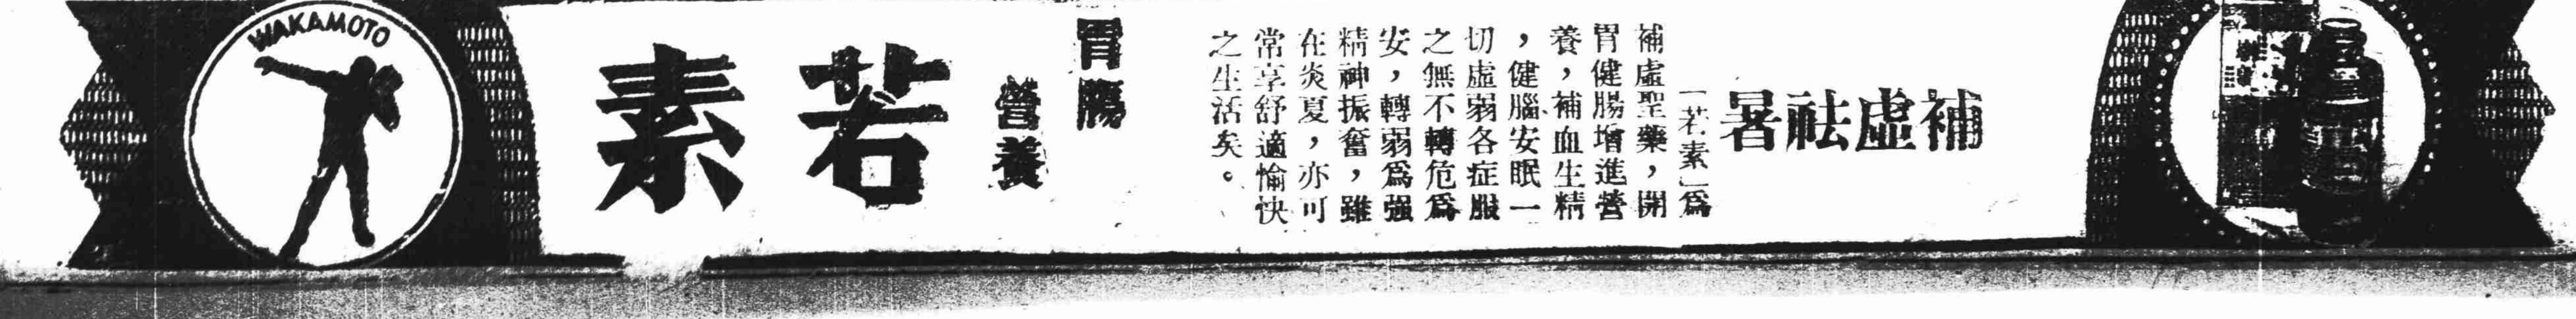 補虛祛暑
「若素」為
補虛聖藥，開
胃健腸增進營
養，補血生精
，健腦安眠一
切虛弱各症服
之無不轉危為
安，轉弱為强
精神振奮，雖
在炎夏，亦可
常享舒適愉快
之生活矣。
胃腸
營養
若素
WAKAMOTO